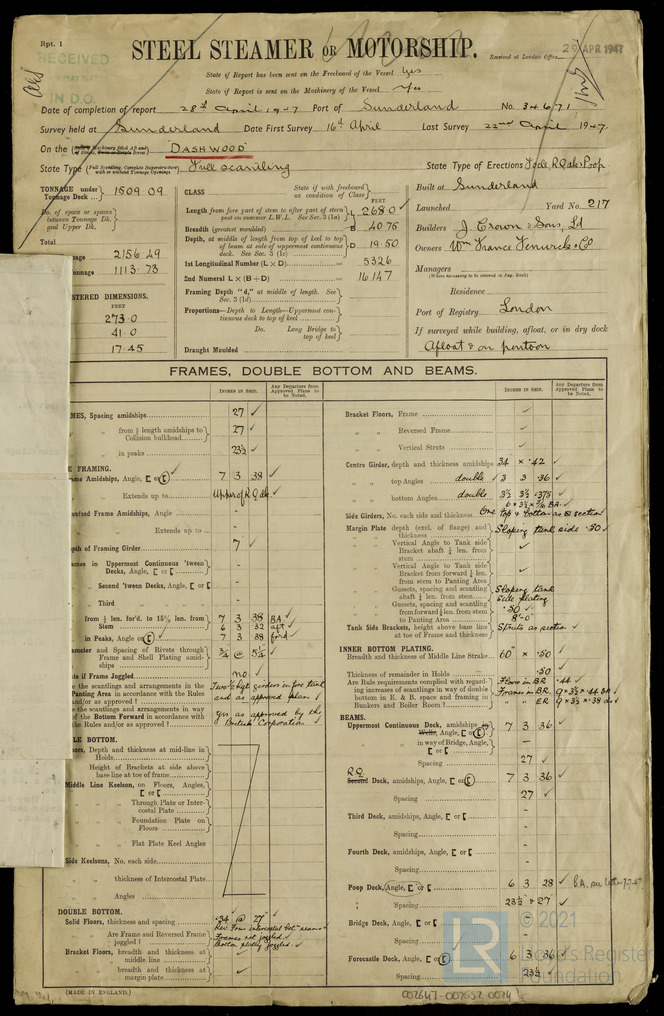 Rpt. 1
RECEIVED
IN D.O.
STEEL STEAMER OR MOTORSHIP.
Received at London Office
29 APR 1947
State if Report has been sent on the Freeboard of the Vessel Yes
State if Report is sent on the Machinery of the Vessel Yes
Date of completion of report 28th April 1947 Port of Sunderland No. 34671
Survey held at Sunderland Date First Survey 16th April Last Survey 22nd April 1947
On the "DASHWOOD"
State Type (Full Scantling, Complete Superstructure with or without Tonnage Openings) Full scantling State Type of Erections Focle, R.Qdk & Poop
TONNAGE under Tonnage Deck ... 1509.09
Do. of space or spaces between Tonnage Dk. and Upper Dk.
Total
2156.49
onnage 1113.73
STERED DIMENSIONS.
FEET
273.0
41.0
17.45
CLASS State if with freeboard as condition of Class
FEET
Length from fore part of stem to after part of stern post on summer L.W.L. See Sec. 3 (1a) L 268.0 ✓
Breadth (greatest moulded) B 40.75
Depth, at middle of length from top of keel to top of beam at side of uppermost continuous deck. See Sec. 3 (1c) D 19.50
1st Longitudinal Number (L × D) 5326
2nd Numeral L × (B + D) 16147
Framing Depth "d," at middle of length. See Sec. 3 (1d)
Proportions—Depth to Length—Uppermost continuous deck to top of keel
Do. Long Bridge to top of keel
Draught Moulded
Built at Sunderland
Launched Yard No. 217
Builders J. Crown & Sons, Ld
Owners Wm France Fenwick & Co
Managers
Residence
Port of Registry London
If surveyed while building, afloat, or in dry dock
Afloat & on pontoon
FRAMES, DOUBLE BOTTOM AND BEAMS.
INCHES IN SHIP.
Any Departure from Approved Plans to be Noted.
MES, Spacing amidships 27 ✓
from ⅗ length amidships to Collision bulkhead 27 ✓
in peaks 23½ ✓
E FRAMING.
ame Amidships, Angle, [ or [ 7 3 .38 ✓
Extends up to Upper & R.Qdk ✓
versed Frame Amidships, Angle -
Extends up to -
epth of Framing Girder 7 ✓
ames in Uppermost Continuous 'tween Decks, Angle, [ or [ -
Second 'tween Decks, Angle, [ or [ -
Third -
from ⅗ len. for'd. to 15% len. from Stem 7 3 .38 BA ✓
6 3 .32 aft ✓
in Peaks, Angle or [ 7 3 .38 ford ✓
ameter and Spacing of Rivets through Frame and Shell Plating amidships ¾ @ 5¼ ✓
ate if Frame Joggled no. ✓
e the scantlings and arrangements in the Panting Area in accordance with the Rules and/or as approved?
and as approved plan ✓
e the scantlings and arrangements in way of the Bottom Forward in accordance with the Rules and/or as approved?
Yes as approved by the British Corporation ✓
LE BOTTOM.
oors, Depth and thickness at mid-line in Holds
Height of Brackets at side above base line at toe of frame
Middle Line Keelson, on Floors, Angles, [ or [
Through Plate or Intercostal Plate
Foundation Plate on Floors
Flat Plate Keel Angles
Side Keelsons, No. each side
thickness of Intercostal Plate
Angles
DOUBLE BOTTOM.
Solid Floors, thickness and spacing .34 @ 27"
Are Frame and Reversed Frame joggled?
Frames not joggled ✓
Bottom plating joggled ✓
Bracket Floors, breadth and thickness at middle line ✓
breadth and thickness at margin plate ✓
INCHES IN SHIP.
Any Departure from Approved Plans to be Noted.
Bracket Floors, Frame ✓
Reversed Frame ✓
Vertical Struts ✓
Centre Girder, depth and thickness amidships 34 × .42 ✓
top Angles double 3 3 .36 ✓
bottom Angles double 3½ 3½ .375 ✓
Side Girders, No. each side and thickness One
top & bottom as B section
Margin Plate depth (excl. of flange) and thickness Sloping tank side .50 ✓
Vertical Angle to Tank side Bracket abaft ¼ len. from stem ✓
Vertical Angle to Tank side Bracket from forward ¼ len. from stem to Panting Area ✓
Gussets, spacing and scantling abaft ¼ len. from stem Sloping tank side plating
Gussets, spacing and scantling from forward ¼ len. from stem to Panting Area .50 ✓
Tank Side Brackets, height above base line at toe of Frame and thickness 8'-0" Struts as section ✓
INNER BOTTOM PLATING.
Breadth and thickness of Middle Line Strake 60" × .50 ✓
Thickness of remainder in Holds .50 ✓
Are Rule requirements complied with regarding increases of scantlings in way of double bottom in E. & B. space and framing in Bunkers and Boiler Room?
Floors in BR .44 ✓
Frames in BR. 9 × 3½ × .44 BA ✓
ER 9 × 3½ × .38 do ✓
BEAMS.
Uppermost Continuous Deck, amidships Angle, [ or [ 7 3 .36 ✓
in way of Bridge, Angle, [ or [ -
Spacing 27 ✓
R.Q. Deck, amidships, Angle, [ or [ 7 3 .36 ✓
Spacing 27 ✓
Third Deck, amidships, Angle, [ or [ -
Spacing -
Fourth Deck, amidships, Angle, [ or [ -
Spacing -
Poop Deck, Angle, [ or [ 6 3 .28 ✓
Spacing 23½ & 27 ✓
Bridge Deck, Angle, [ or [ -
Spacing -
Forecastle Deck, Angle, [ or [ 6 3 .36 ✓
Spacing 23½ ✓
(MADE IN ENGLAND.)
LR
© 2021
Lloyd's Register
Foundation
002647-002652-0024